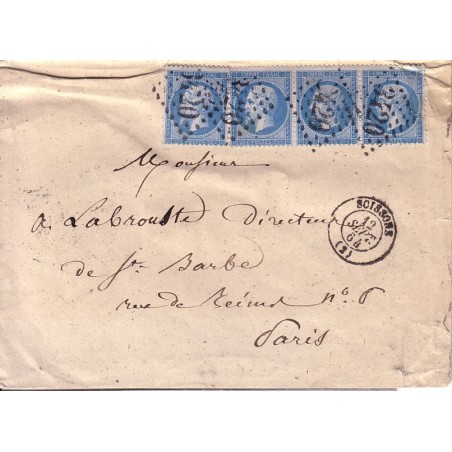 3420 3420 3420 3420
Monsieur
A Labrouste Directeur
de Ste Barbe
rue de Reims n° 6
Paris
SOISSONS
12
SEPT.
64
(2)